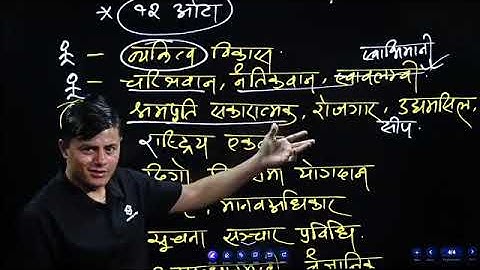 × १२ ओटा
व्यक्तित्व विकास.
स्वाभिमानी
चरित्रवान, नैतिकवान, स्वावलम्बी
श्रमप्रति सकारात्मक, रोजगार, उद्यमसिल,
सीप.
राष्ट्रिय
दिगो योगदान
मानवअधिकार
सूचना सञ्चार प्रविधि.
वैज्ञानिक
4/4